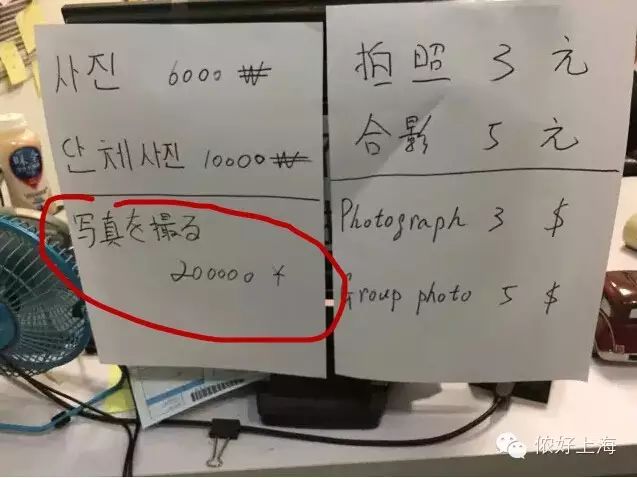 사진 6000 ₩
단체사진 10000 ₩
写真を撮る
200000 ¥
拍照 3 元
合影 5 元
Photograph 3 $
Group photo 5 $
侬好上海